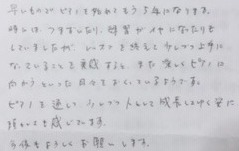 早いものでピアノを始めてもう5年になります。
時には、つまずいたり、練習がイヤになったりも
していましたが、レッスンを終えて少しづつ上手に
なっていることを実感すると、また楽しくピアノに
向かうといった日々をおくっているようです。
ピアノを通して、少しづつ人として成長してゆく姿に
頼もしさを感じています。
今後もよろしくお願いします。